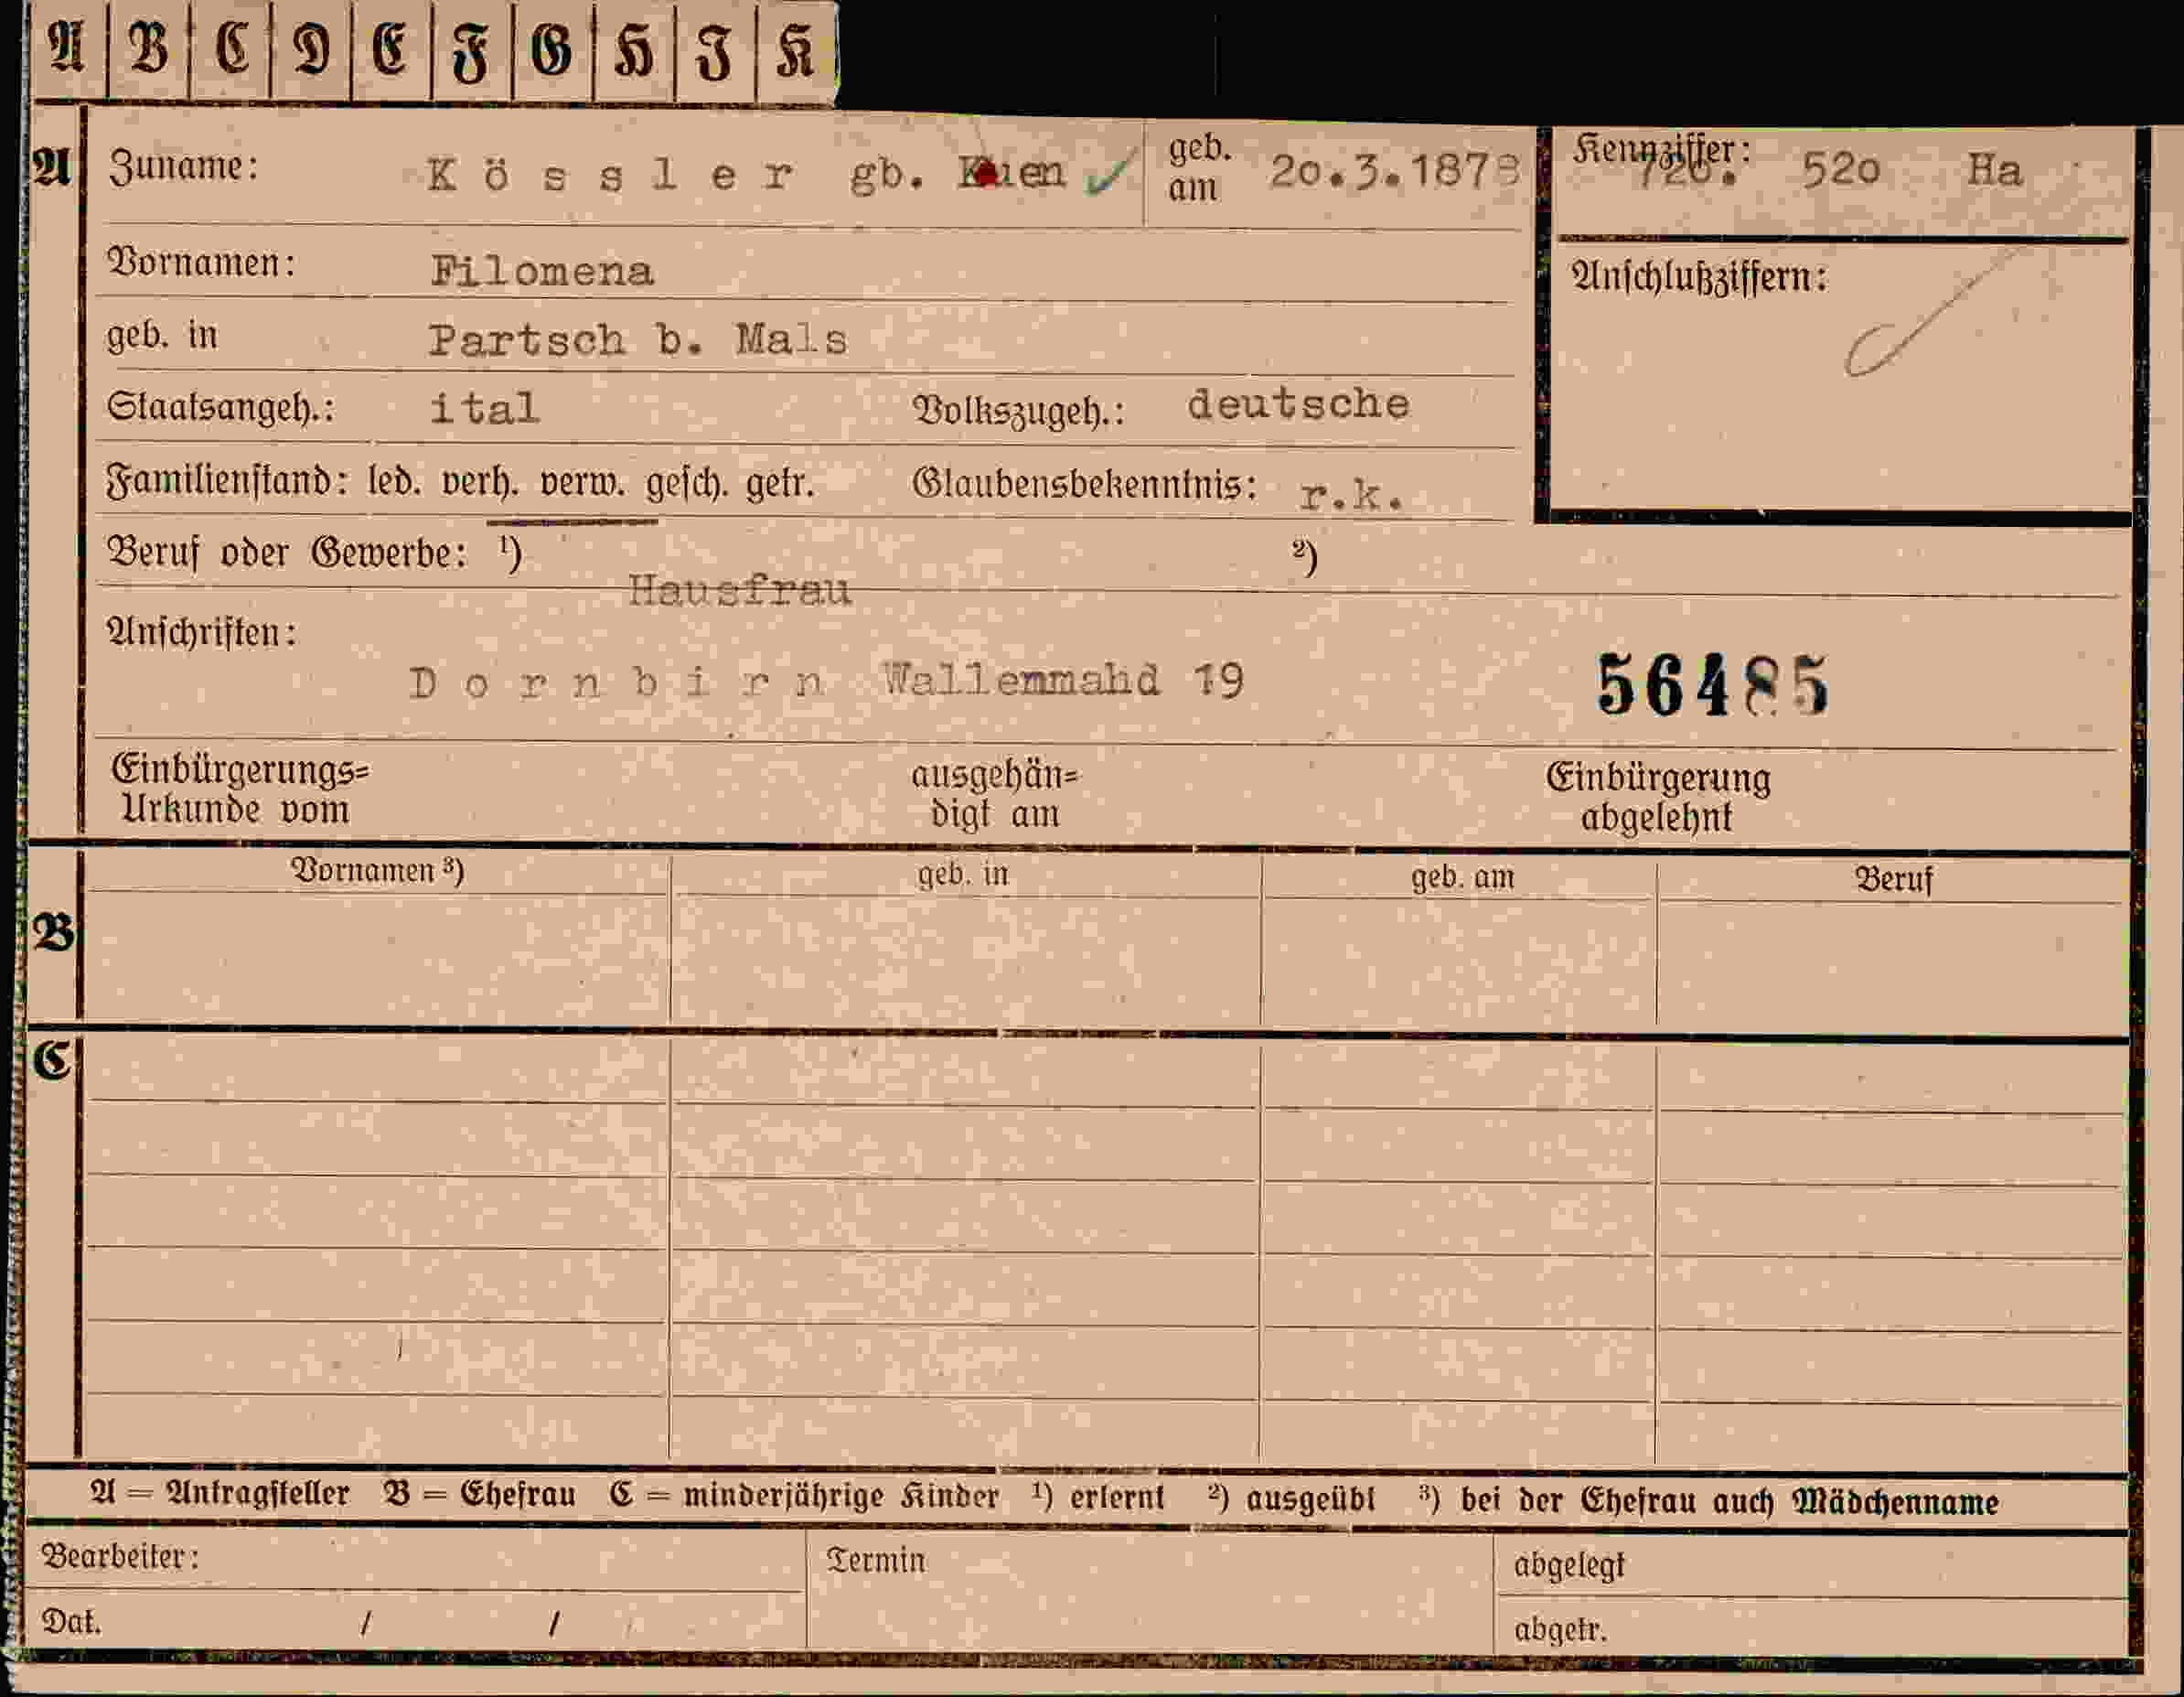 A B C D E F G H I K
A Zuname: Kössler gb. Kuen ✓ geb. am 20.3.1878 Kennziffer: 720. 520 Ha
Vornamen: Filomena
Anschlußziffern:
geb. in Partsch b. Mals
Staatsangeh.: ital Volkszugeh.: deutsche
Familienstand: led. verh. verw. gesch. getr. Glaubensbekenntnis: r.k.
Beruf oder Gewerbe: ¹) Hausfrau ²)
Anschriften:
Dornbirn Wallenmahd 19 56485
Einbürgerungs= ausgehän= Einbürgerung
Urkunde vom digt am abgelehnt
Vornamen ³) geb. in geb. am Beruf
B
C
A = Antragsteller B = Ehefrau C = minderjährige Kinder ¹) erlernt ²) ausgeübt ³) bei der Ehefrau auch Mädchenname
Bearbeiter: Termin abgelegt
Dat. / / abgetr.